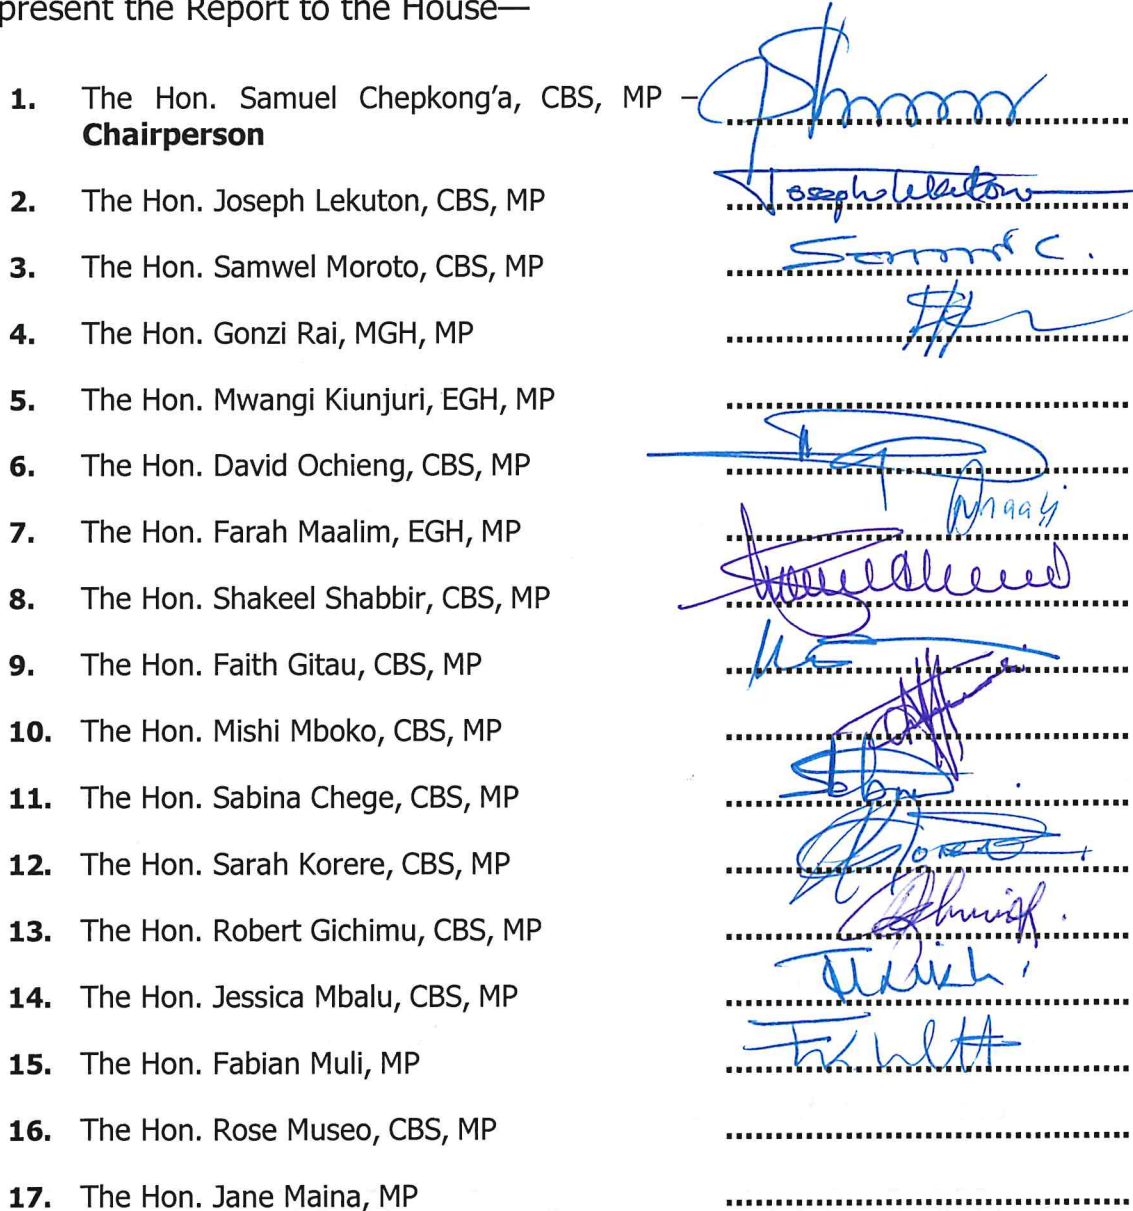 present the Report to the House—
1. The Hon. Samuel Chepkong'a, CBS, MP –
Chairperson
2. The Hon. Joseph Lekuton, CBS, MP Joseph Lekuton
3. The Hon. Samwel Moroto, CBS, MP
4. The Hon. Gonzi Rai, MGH, MP
5. The Hon. Mwangi Kiunjuri, EGH, MP
6. The Hon. David Ochieng, CBS, MP
7. The Hon. Farah Maalim, EGH, MP
8. The Hon. Shakeel Shabbir, CBS, MP
9. The Hon. Faith Gitau, CBS, MP
10. The Hon. Mishi Mboko, CBS, MP
11. The Hon. Sabina Chege, CBS, MP
12. The Hon. Sarah Korere, CBS, MP
13. The Hon. Robert Gichimu, CBS, MP
14. The Hon. Jessica Mbalu, CBS, MP
15. The Hon. Fabian Muli, MP
16. The Hon. Rose Museo, CBS, MP
17. The Hon. Jane Maina, MP